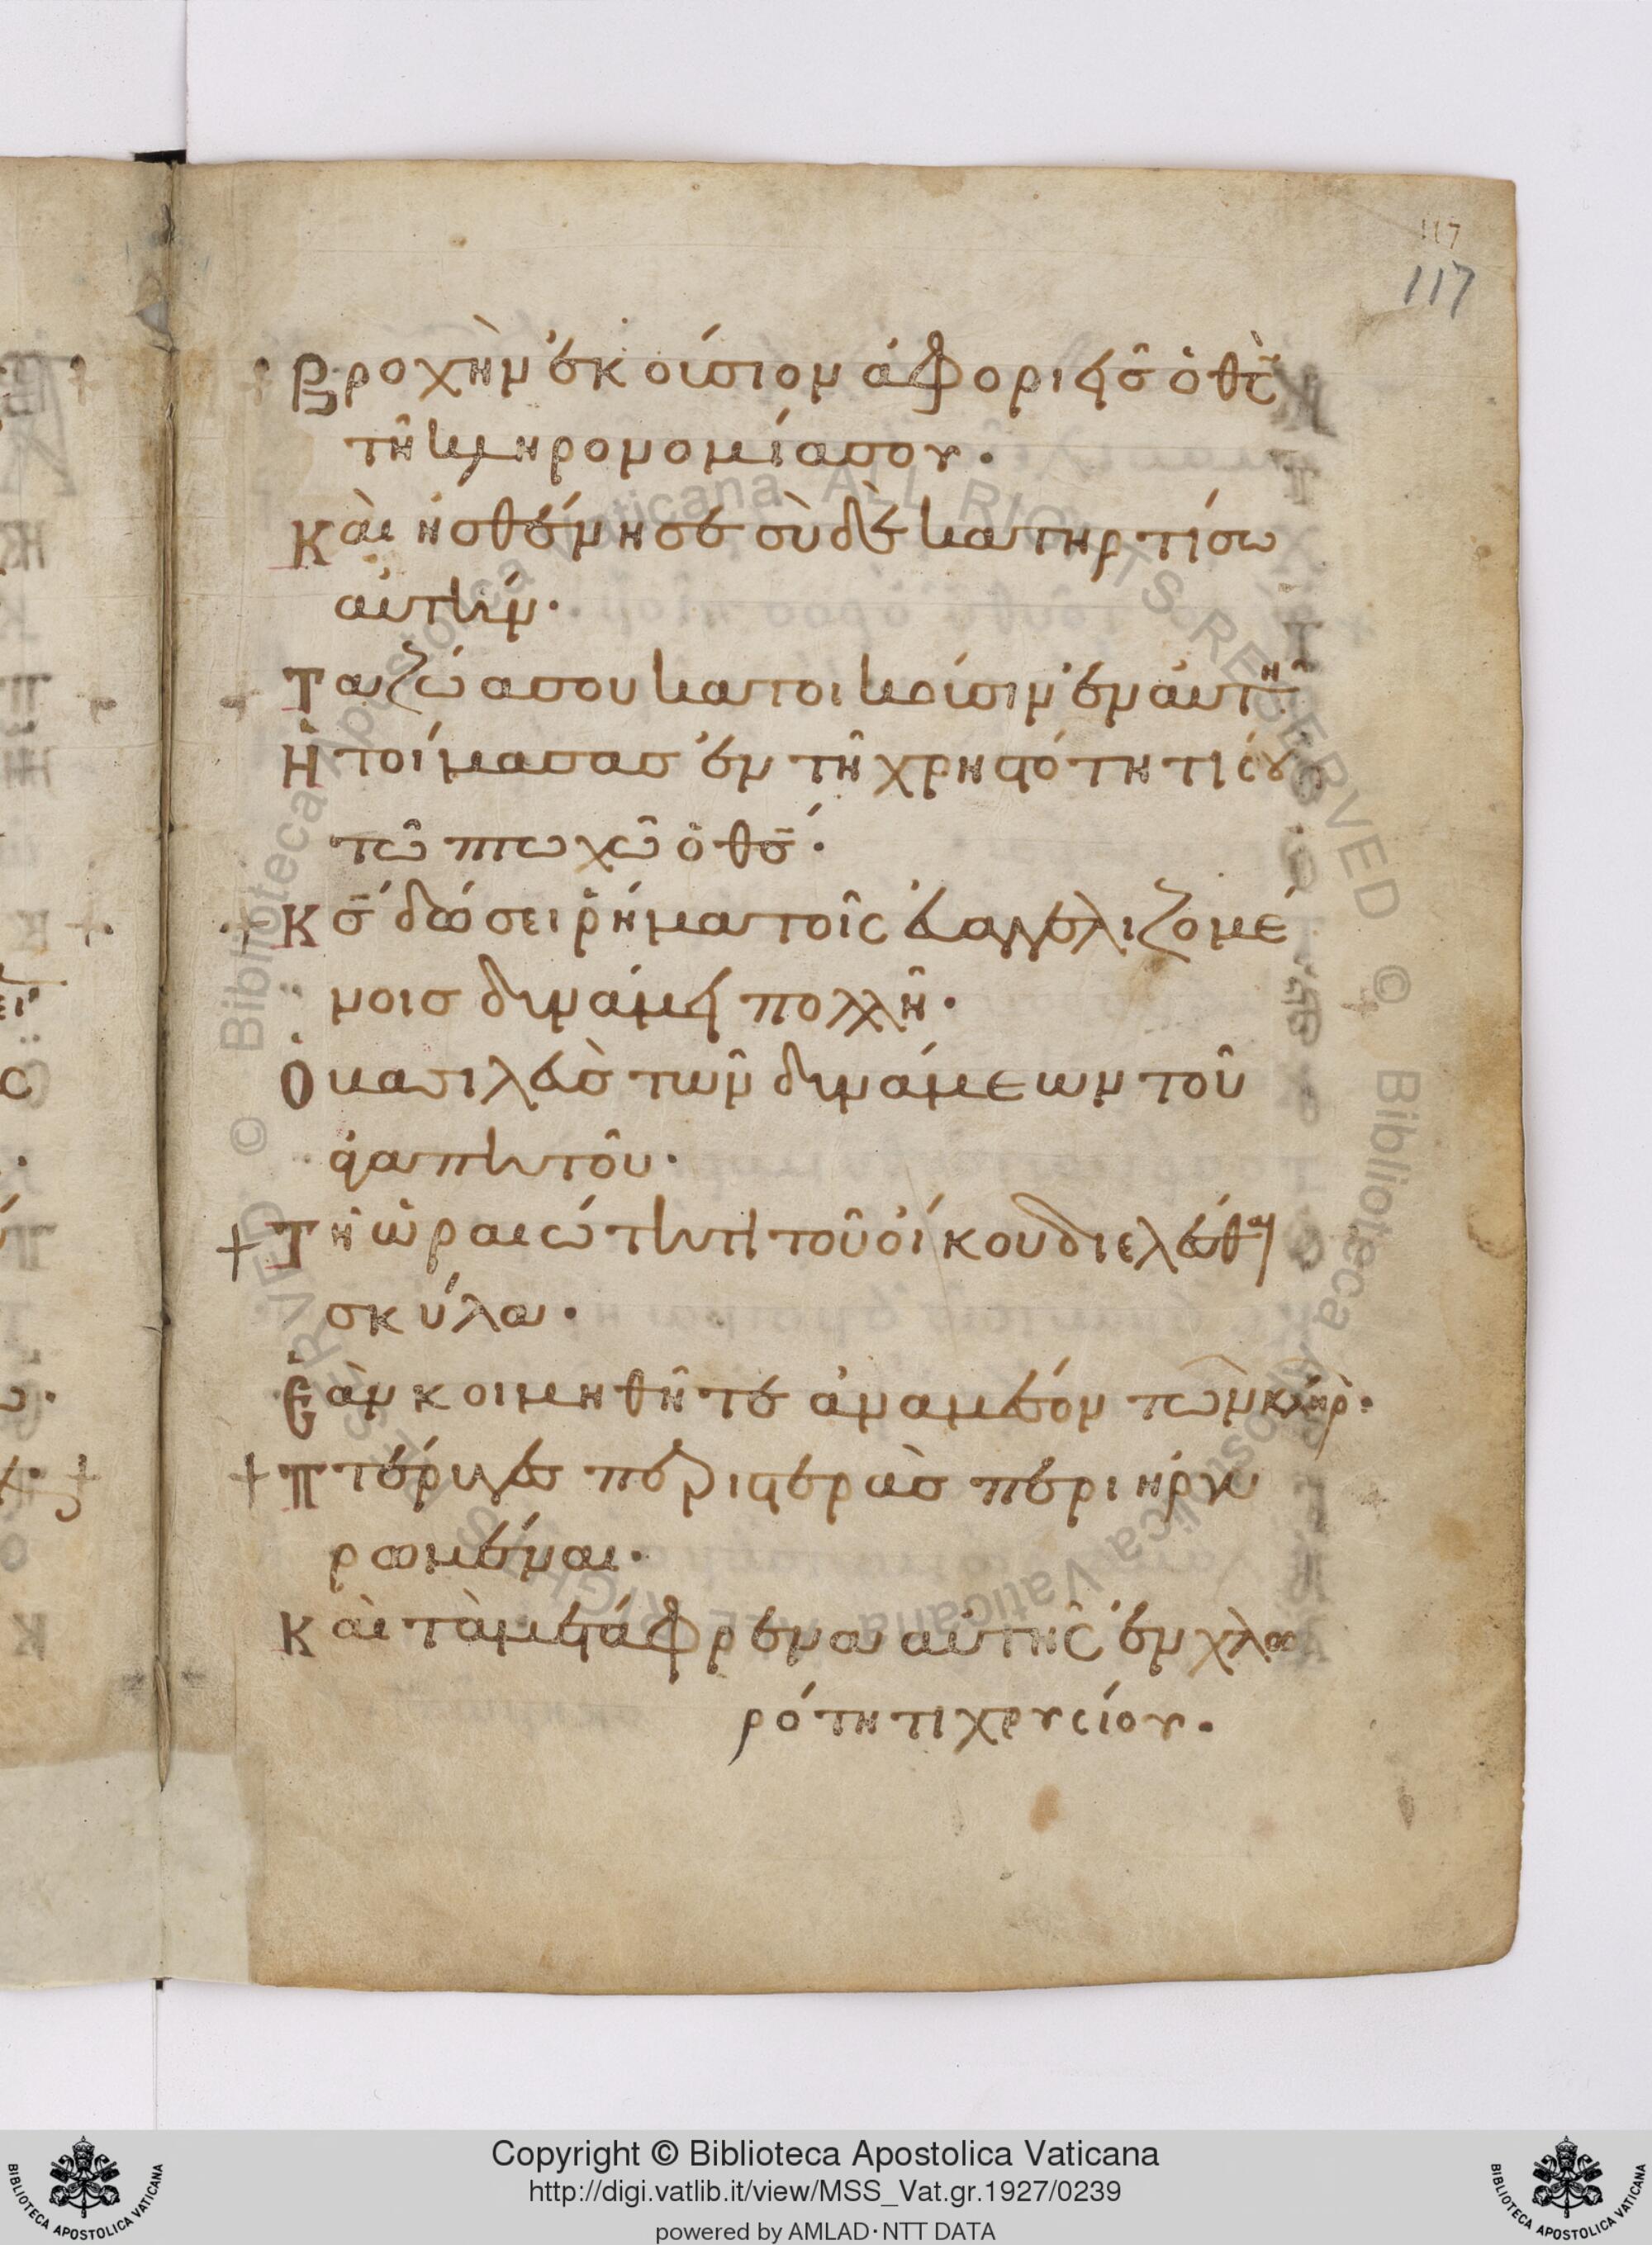 117
117
Βροχὴν ἑκούσιον ἀφοριεῖς ὁ θς
τῆ κληρονομία σου.
Καὶ ἠσθένησε σὺ δὲ κατηρτίσω
αὐτήν.
Τα ζῶα σου κατοικοῦσιν ἐν αὐτῆ
Ἡτοίμασας ἐν τῆ χρηστότητί σου
τῶ πτωχῶ ὁ θς.
Κς δώσει ῥήμα τοῖς εὐαγγελιζομέ
νοις δυνάμει πολλῆ.
Ὁ βασιλεὺς τῶν δυνάμεων τοῦ
ἀγαπητοῦ.
+ Τῆ ὡραιότητι τοῦ οἴκου διελέσθαι
σκύλα.
Ἐὰν κοιμηθῆτε ἀναμέσον τῶν κλήρ.
+ Πτέρυγες περιστερᾶς περιηργυ
ρωμέναι.
Καὶ τὰ μετάφρενα αὐτῆς ἐν χλω
ρότητι χρυσίου.
Copyright © Biblioteca Apostolica Vaticana
http://digi.vatlib.it/view/MSS_Vat.gr.1927/0239
powered by AMLAD·NTT DATA
BIBLIOTECA APOSTOLICA VATICANA
BIBLIOTECA APOSTOLICA VATICANA